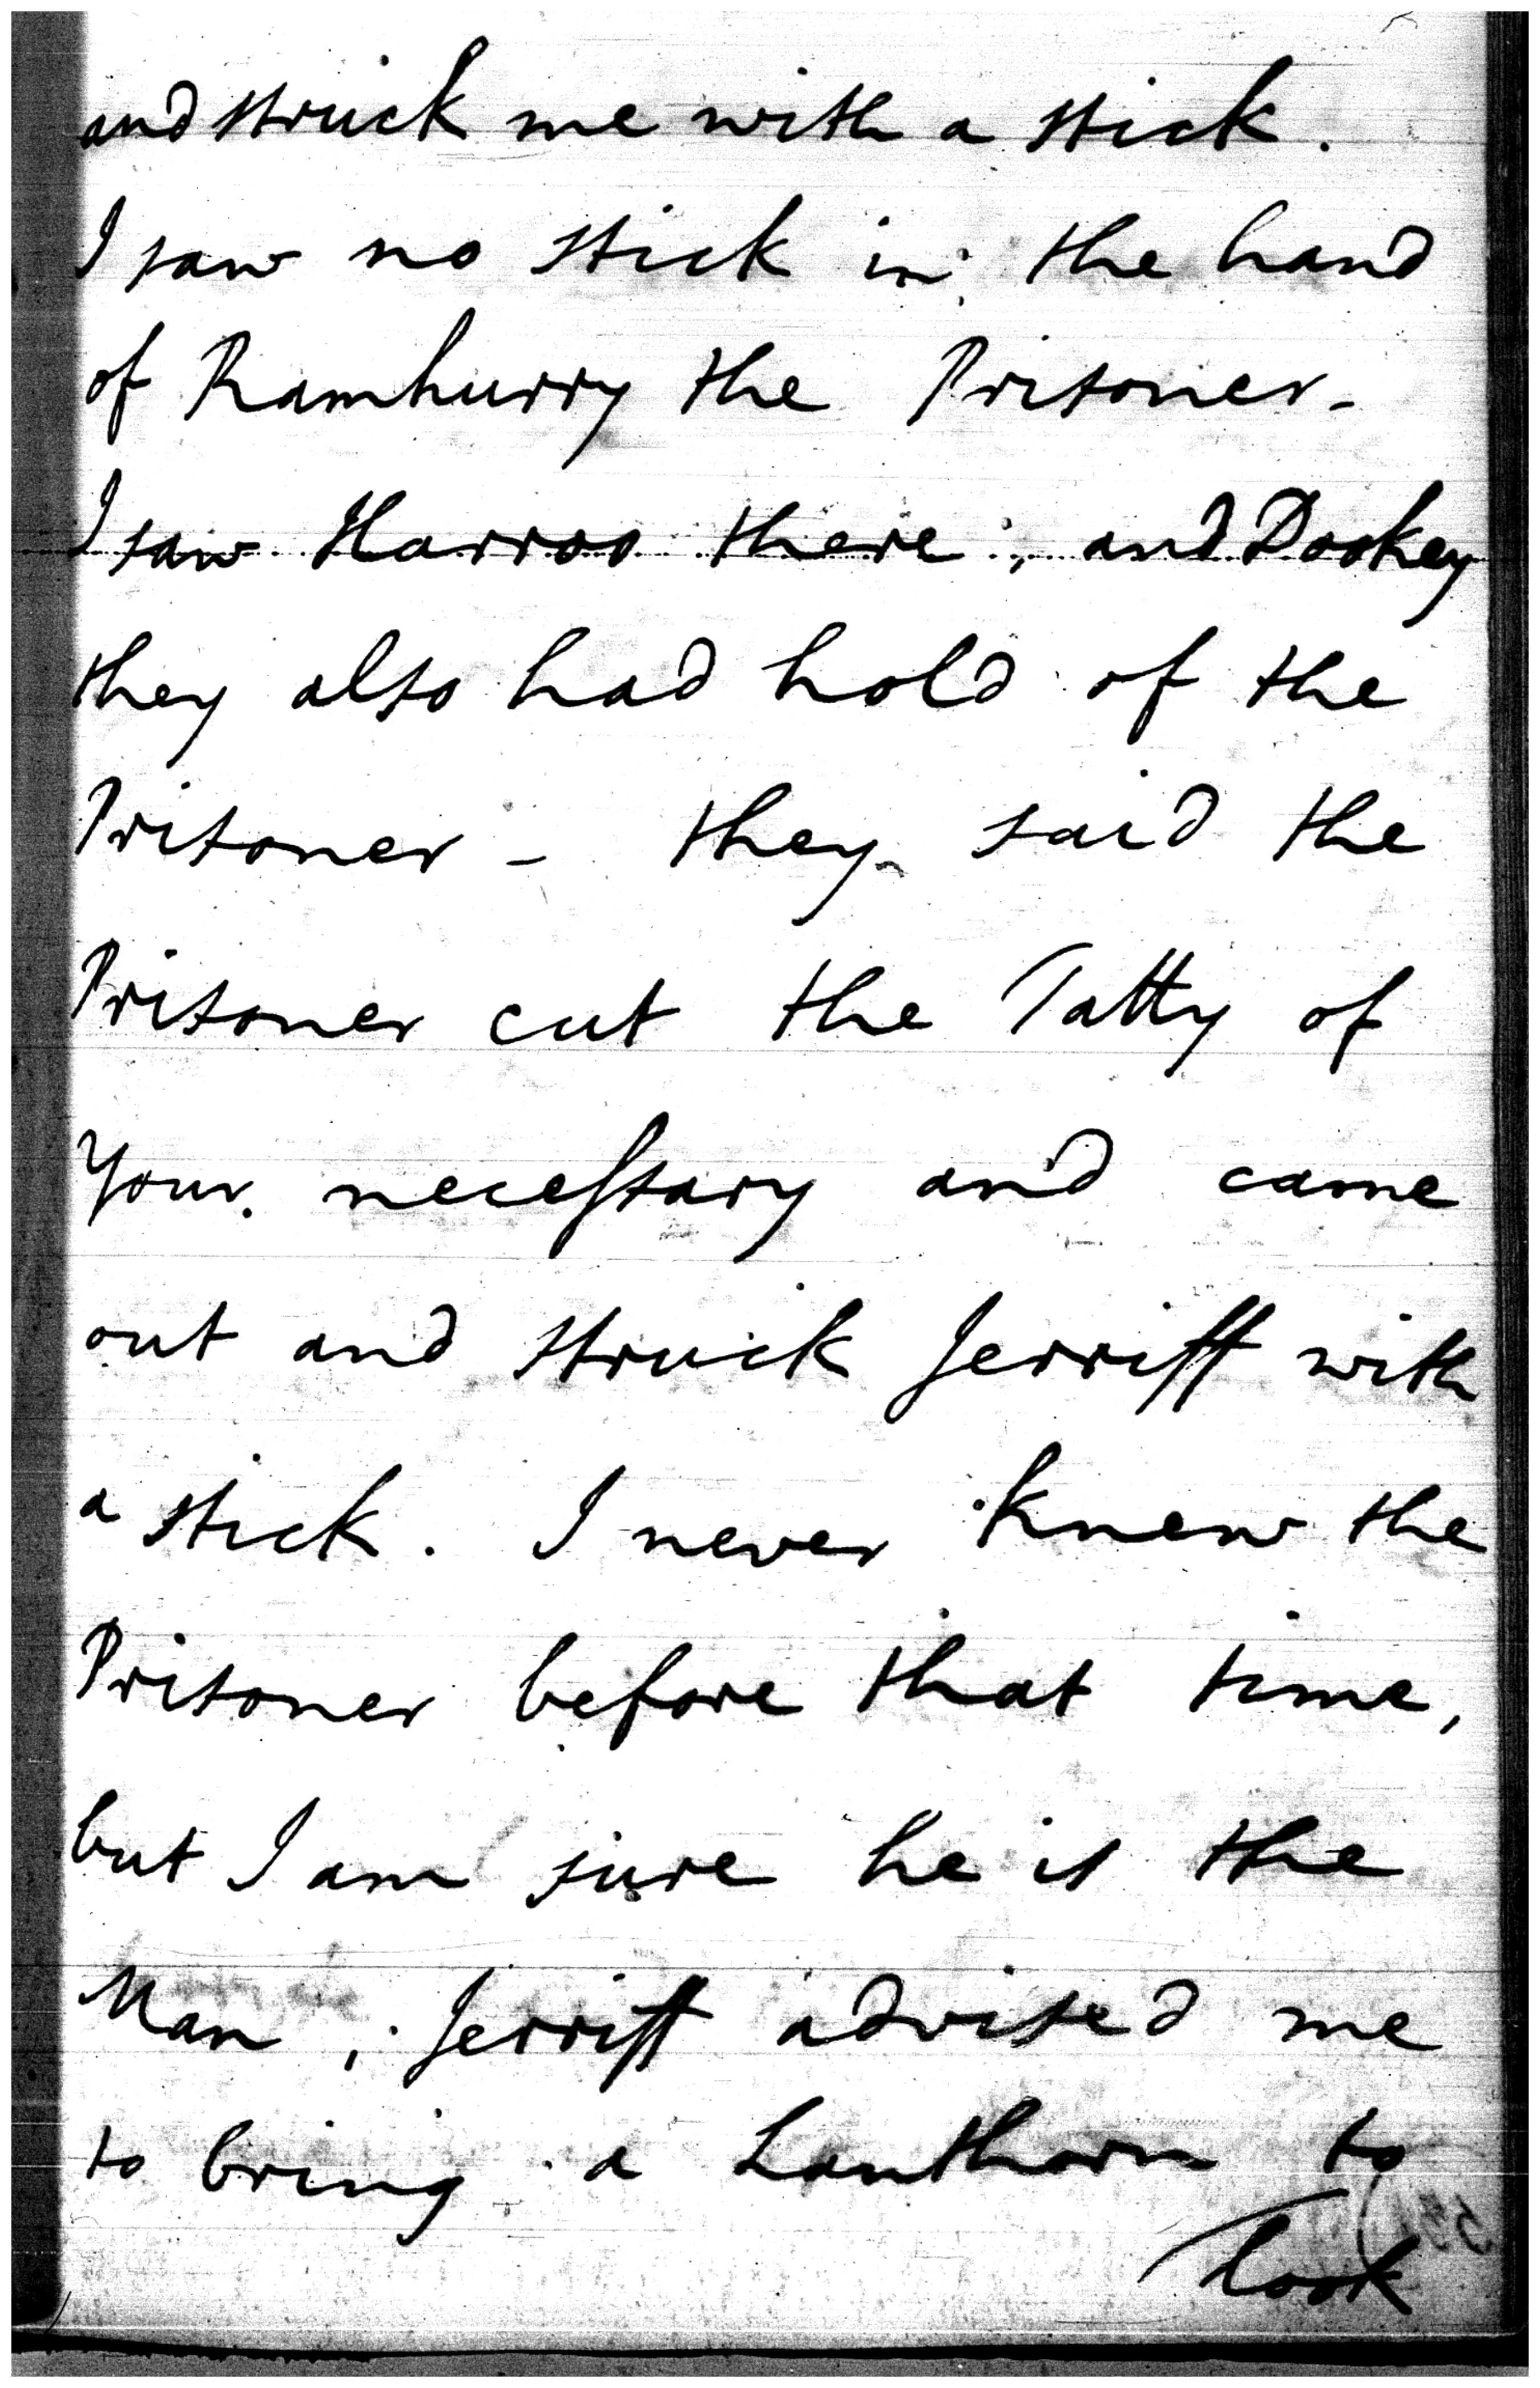 and struck me with a stick.
I saw no stick in the hand
of Ramhurry the Prisoner-
I saw Harroo there, and Dookey
they also had hold of the
Prisoner - they said the
Prisoner cut the Tatty of
Your necessary and came
out and struck Jerriff with
a stick. I never knew the
Prisoner before that time,
but I am sure he is the
Man, Jerriff advised me
to bring a Lanthorn to